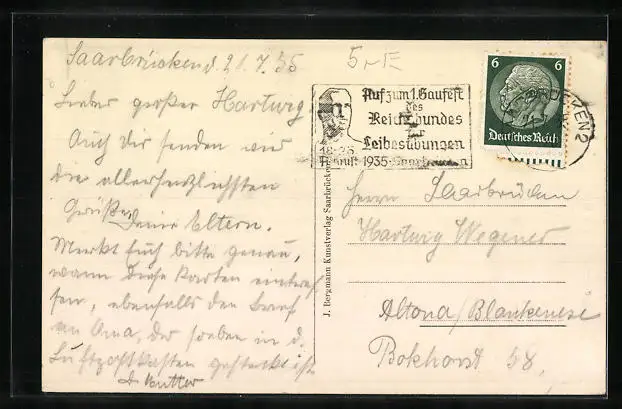 Saarbrücken d. 21.7.35
5,-E
Lieber großer Hartwig
Auch dir senden wir
die allerherzlichsten
Grüße, Deine Eltern.
Merkt Euch bitte genau,
wann diese Karten eintref-
fen, ebenfalls den Brief
an Oma, der soeben in d.
Luftpostkasten gesteckt ist
d. Mutter
Auf zum 1. Gaufest
des
Reichsbundes
für
Leibesübungen
August 1935 - Saarbrücken
6 6
Deutsches Reich
SAARBRÜCKEN 2
J. Bergmann Kunstverlag Saarbrücken
Herrn Saarbrücken
Hartwig Wegener
Altona/Blankenese
Bokhorst 58,